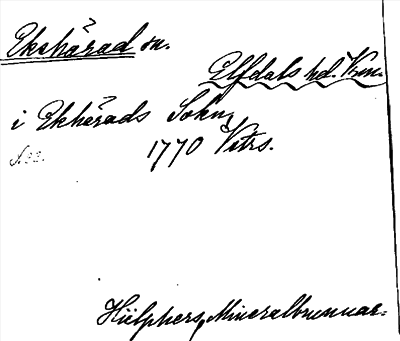 Ekshärad sn.
Elfdals hd. Vrm.
i Ekhärads Sokn,
1770 Vitrs.
Hülphers, Mineralbrunnar.